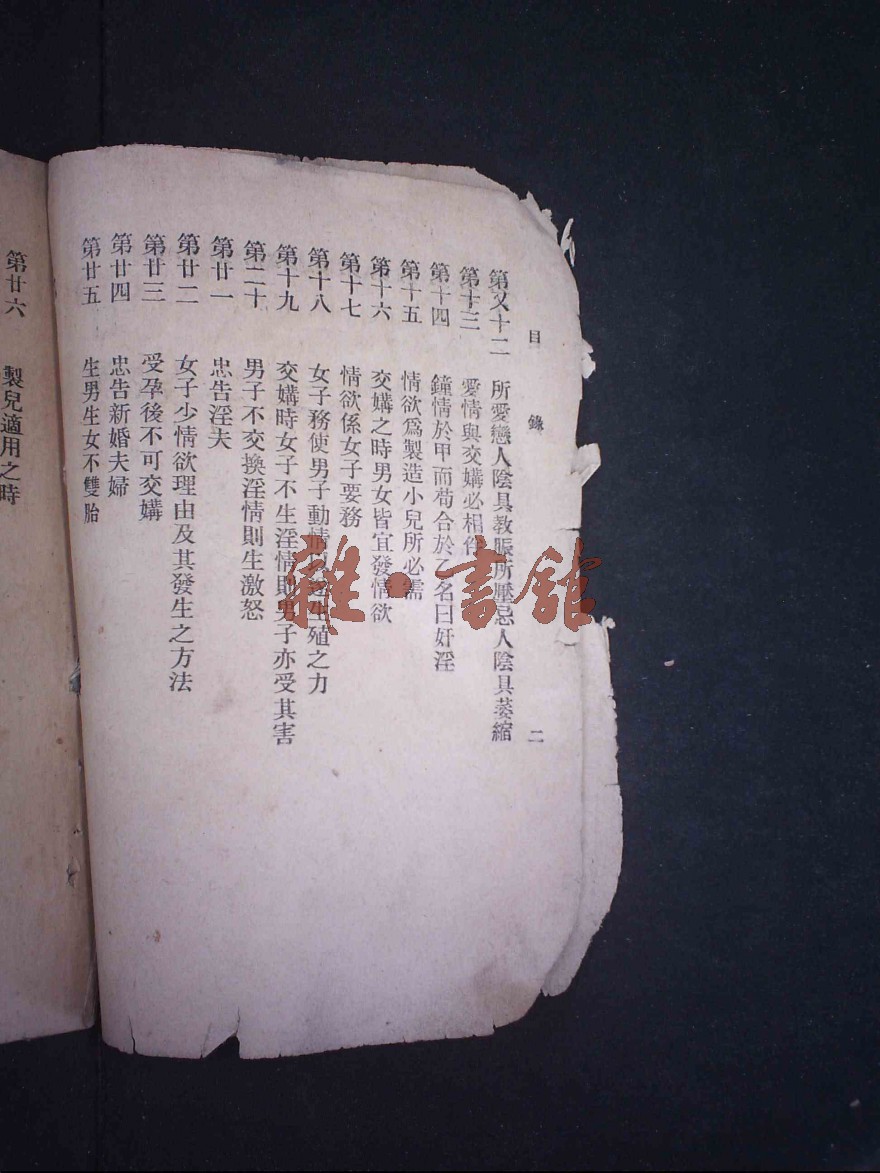 目 錄 二
第又十二 所愛戀人陰具教賬所壓忌人陰具萎縮
第十三 愛情與交媾必相
第十四 鐘情於甲而苟合於乙名曰奸淫
第十五 情欲爲製造小兒所必需
第十六 交媾之時男女皆宜發情欲
第十七 情欲係女子要務
第十八 女子務使男子動情 生殖之力
第十九 交媾時女子不生淫情則男子亦受其害
第二十 男子不交換淫情則生激怒
第廿一 忠告淫夫
第廿二 女子少情欲理由及其發生之方法
第廿三 受孕後不可交媾
第廿四 忠告新婚夫婦
第廿五 生男生女不雙胎
第廿六 製兒適用之時
雜·書館